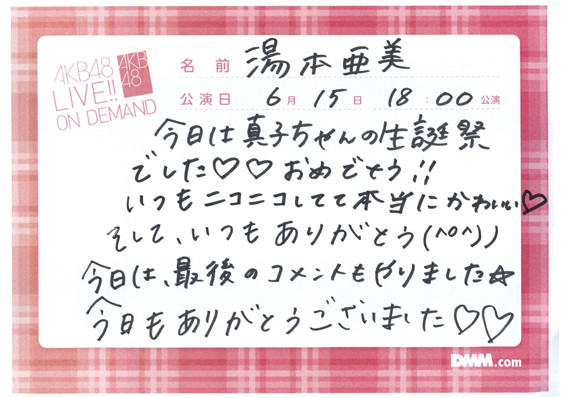 AKB48
LIVE!!
ON DEMAND
AKB
48
名前 湯本亜美
公演日 6月15日 18:00公演
今日は真子ちゃんの生誕祭
でした♡♡おめでとう!!
いつもニコニコしてて本当にかわいい♡
そして、いつもありがとう(^o^)丿
今日は、最後のコメントもやりました☆
今日もありがとうございました♡♡
DMM.com